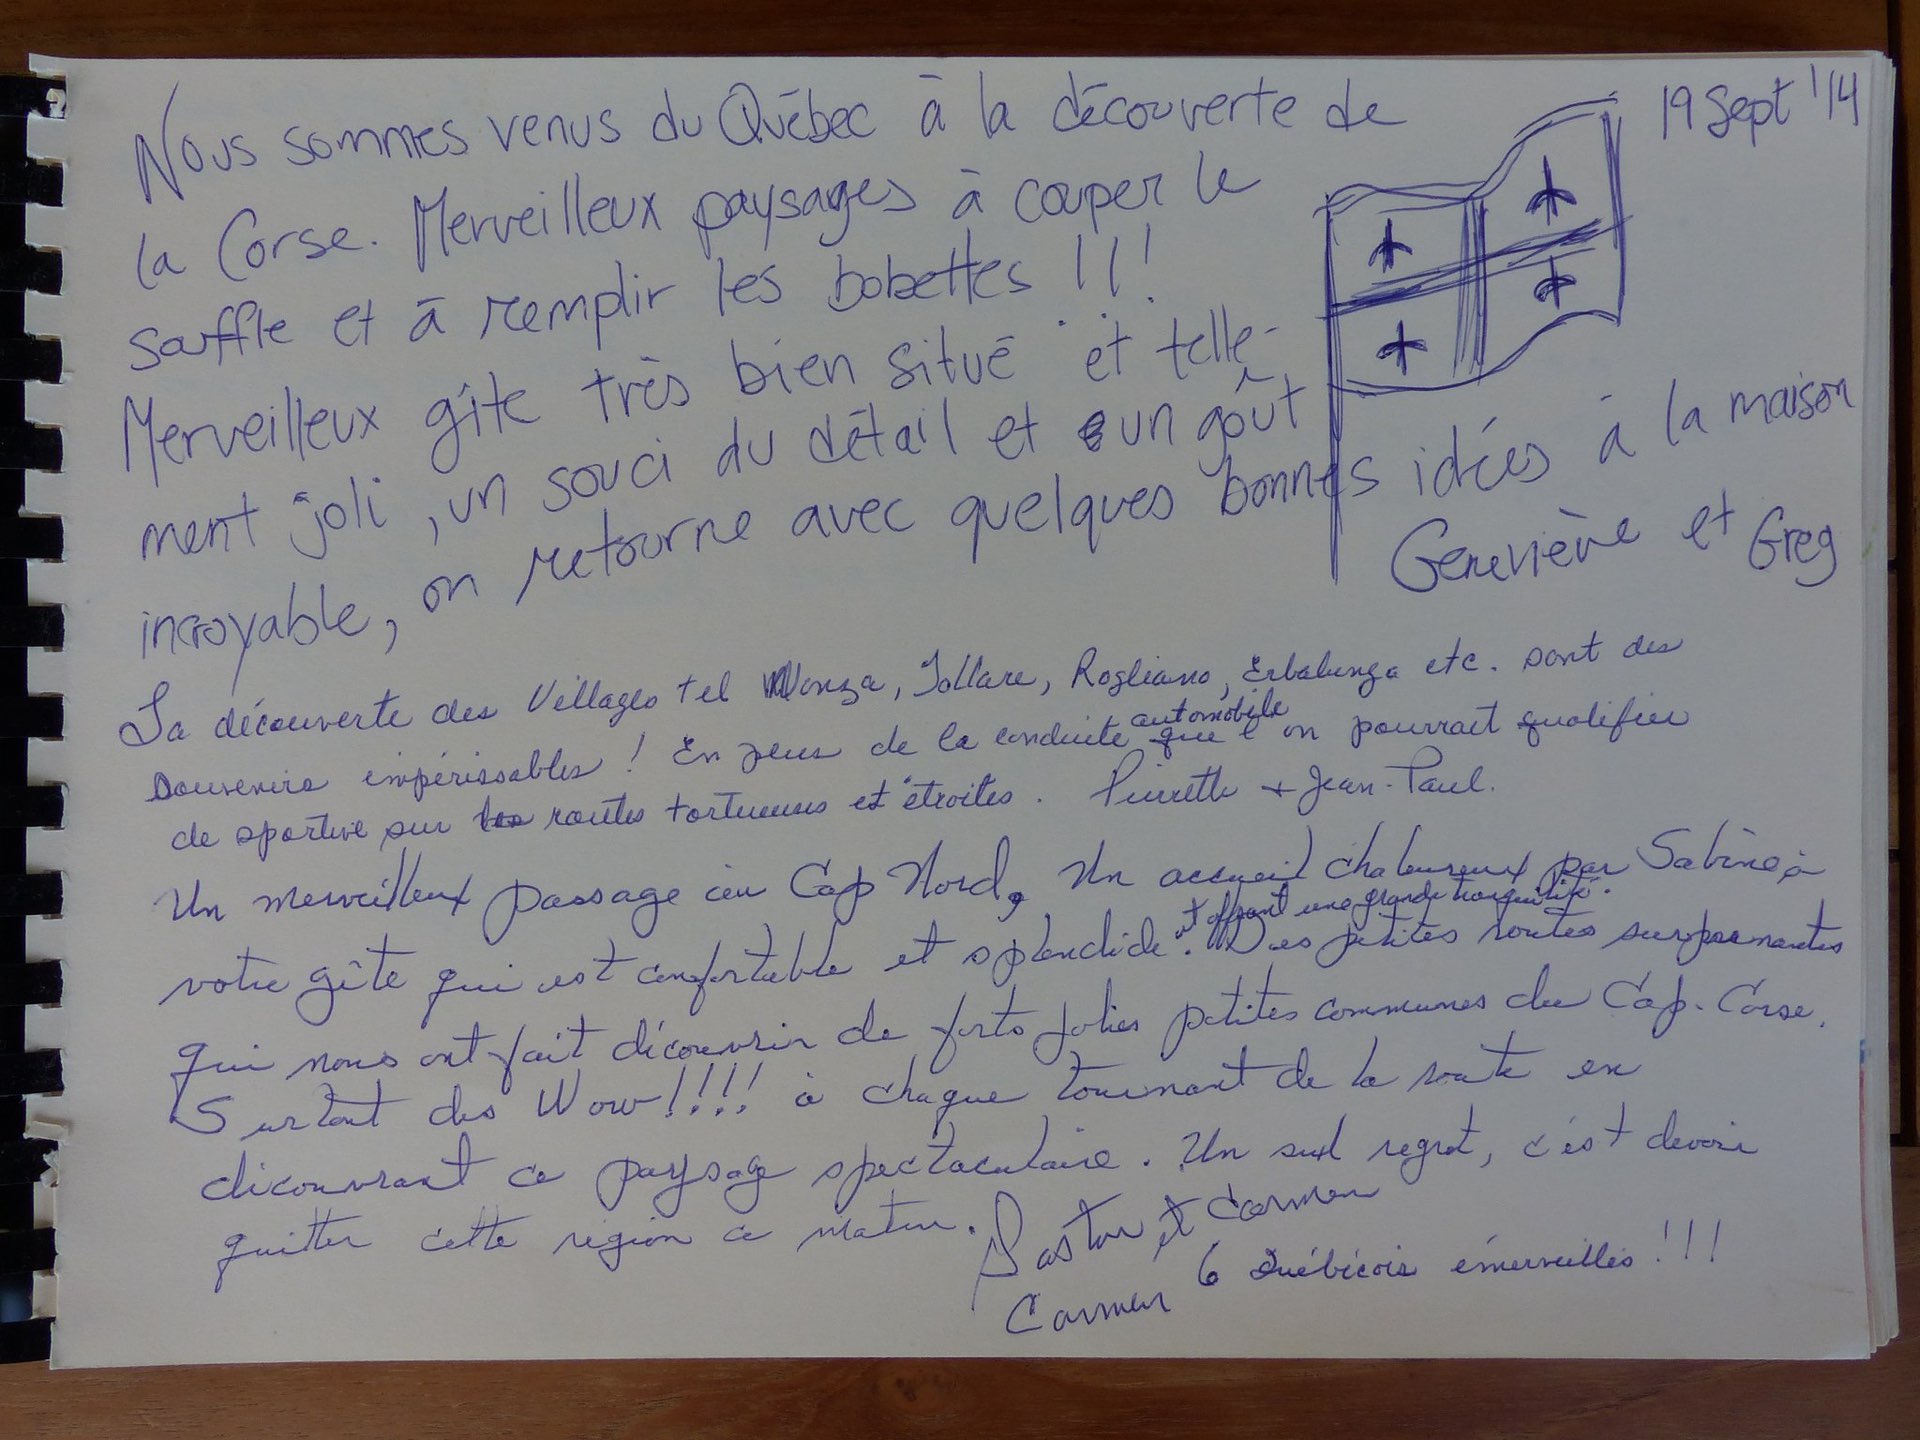 19 Sept '14
Nous sommes venus du Québec à la découverte de
la Corse. Merveilleux paysages à couper le
souffle et à remplir les bobettes !!!
Merveilleux gîte très bien situé et telle-
ment joli, un souci du détail et un goût
incroyable, on retourne avec quelques bonnes idées à la maison
Geneviève et Greg
La découverte des Villages tel Nonza, Tollare, Rogliano, Erbalunga etc. sont des
souvenirs impérissables ! En plus de la conduite automobile que l'on pourrait qualifier
de sportive sur les routes tortueuses et étroites. Pierrette + Jean-Paul.
Un merveilleux passage au Cap Nord, Un accueil chaleureux par Sabine à
votre gîte qui est confortable et splendide et offrant une grande tranquilité. Des petites routes surprenantes
qui nous ont fait découvrir de forts jolies petites communes du Cap-Corse.
Surtout des Wow!!!! à chaque tournant de la route en
découvrant ce paysage spectaculaire. Un seul regret, c'est devoir
quitter cette région ce matin.
et Carmen
Carmen 6 Québécois émerveillés !!!